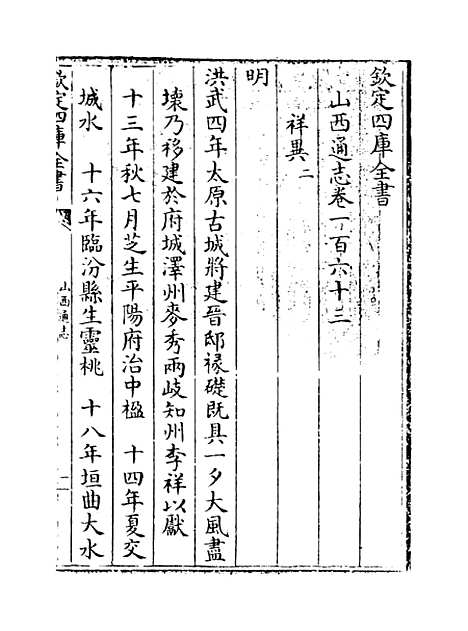 欽定四庫全書
山西通志卷一百六十三
祥異二
明
洪武四年太原古城將建晉邸椽礎既具一夕大風盡
壞乃移建於府城澤州麥秀兩歧知州李祥以獻
十三年秋七月芝生平陽府治中楹 十四年夏交
城水 十六年臨汾縣生靈桃 十八年垣曲大水
欽定四庫全書
山西通志
一